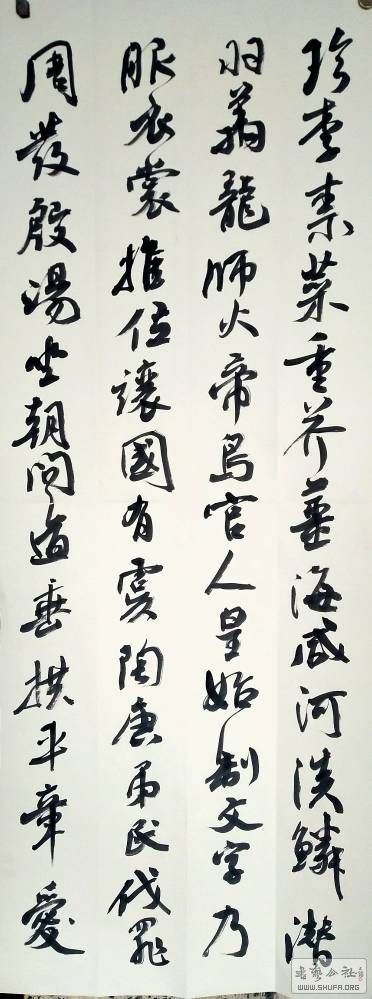 珍李柰菜重芥薑海咸河淡鱗潛
羽翔龍師火帝鳥官人皇始制文字乃
服衣裳推位讓國有虞陶唐弔民伐罪
周發殷湯坐朝問道垂拱平章愛
书艺公社
WWW.SHUFA.ORG